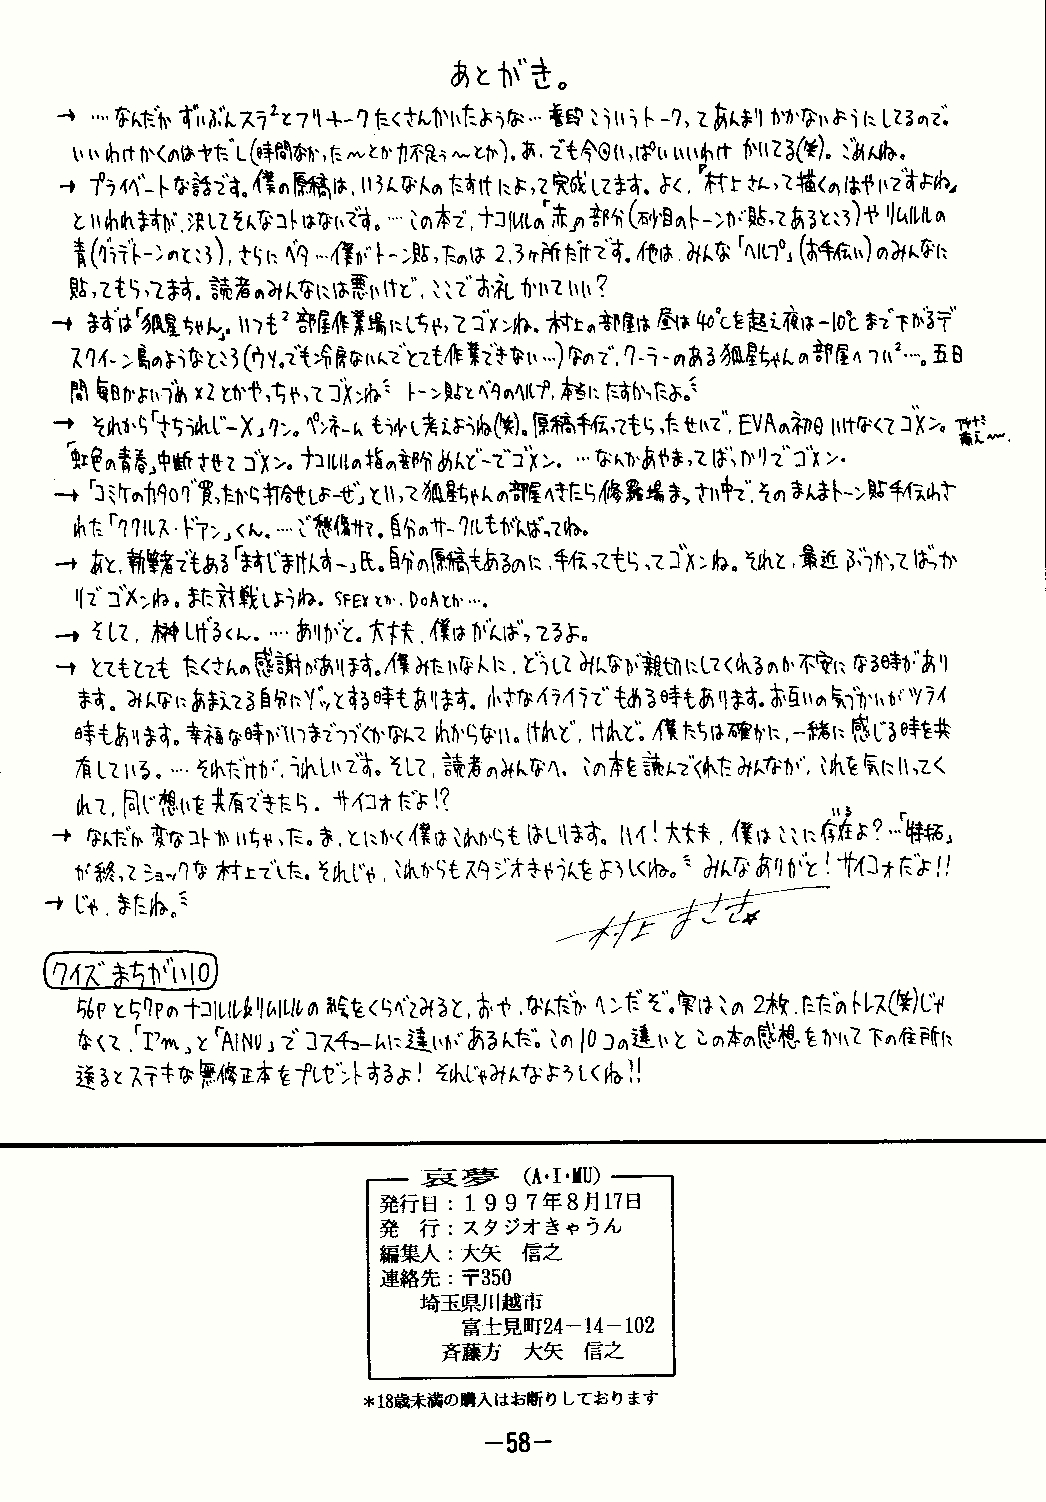 あとがき。
→ …なんだか ずいぶんスラ²とフリートークたくさんかいたような…普段こういうトークってあんまりかかないようにしてるので。
いいわけかくのはヤだし(時間なかった〜とか力不足〜とか)。あ、でも今回いっぱいいいわけ かいてる(笑)。ごめんね。
→ プライベートな話です。僕の原稿は、いろんな人のたすけによって完成してます。よく、「村上さんって描くのはやいですよね」
といわれますが、決してそんなコトはないです。…この本で、ナコルルの「赤」の部分(砂目のトーンが貼ってあるところ)やリムルルの
青(グラデトーンのところ)、さらにベタ…僕がトーン貼ったのは2、3ヶ所だけです。他は、みんな「ヘルプ」(お手伝い)のみんなに
貼ってもらってます。読者のみんなには悪いけど、ここでお礼かいていい?
→ まずは「狐星ちゃん」。いつも² 部屋作業場にしちゃってゴメンね。村上の部屋は昼は40℃を超え夜は-10℃まで下がるデ
スクイーン島のようなところ(ウソ。でも冷房ないんでとても作業できない…)なので、クーラーのある狐星ちゃんの部屋へつい²…。五日
間毎日かよいづめ×2とかやっちゃってゴメンね トーン貼とベタのヘルプ、本当にたすかったよ。
→ それから「さちうれじーX」クン。ペンネームもう少し考えようね(笑)。原稿手伝ってもらったせいで、EVAの初日いけなくてゴメン。
「虹色の青春」中断させてゴメン。ナコルルの指の部分めんどーでゴメン。…なんかあやまってばっかりでゴメン。
→ 「コミケのカタログ買ったから打合せしよーぜ」といって狐星ちゃんの部屋へきたら修羅場まっさい中で、そのまんまトーン貼手伝わさ
れた「ククルス・ドアン」くん。…ご愁傷サマ。自分のサークルもがんばってね。
→ あと、執筆者でもある「ますじまけんすー」氏。自分の原稿もあるのに、手伝ってもらってゴメンね。それと、最近ぶつかってばっか
りでゴメンね。また対戦しようね。SFEXとか、DOAとか…。
→ そして、榊しげるくん。…ありがと。大丈夫、僕はがんばってるよ。
→ とてもとても たくさんの感謝があります。僕みたいな人に、どうしてみんなが親切にしてくれるのか不安になる時があり
ます。みんなにあまえてる自分にゾッとする時もあります。小さなイライラでもめる時もあります。お互いの気づかいがツライ
時もあります。幸福な時がいつまでつづくかなんてわからない。けれど、けれど。僕たちは確かに、一緒に感じる時を共
有している。…それだけが、うれしいです。そして、読者のみんなへ。この本を読んでくれたみんなが、これを気にいってく
れて、同じ想いを共有できたら。サイコォだよ!?
→ なんだか変なコトかいちゃった。ま、とにかく僕はこれからもはしります。ハイ!大丈夫、僕はここに存在よ?…
いる
が終ってショックな村上でした。それじゃ、これからもスタジオきゃうんをよろしくね。みんなありがと!サイコォだよ!!
→ じゃ、またね。
村上まさき
クイズ まちがい10
56Pと57Pのナコルル&リムルルの絵をくらべてみると、おや、なんだかヘンだぞ。実はこの2枚、ただのトレス(笑)じゃ
なくて、「I'm」と「AINU」でコスチュームに違いがあるんだ。この10コの違いとこの本の感想をかいて下の住所に
送るとステキな無修正本をプレゼントするよ!それじゃみんなよろしくね!!
哀夢 (A・I・MU)
発行日:1997年8月17日
発　行:スタジオきゃうん
編集人:大矢　信之
連絡先:〒350
埼玉県川越市
富士見町24－14－102
斉藤方　大矢　信之
＊18歳未満の購入はお断りしております
－58－